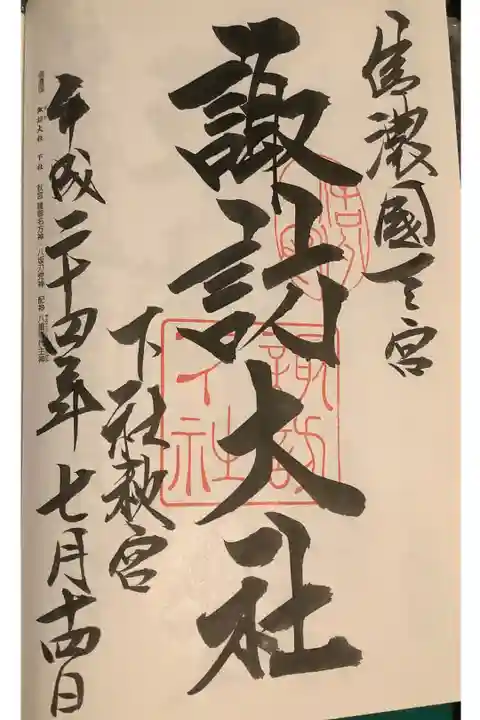 信濃國一之宮
諏訪大社
諏訪
下社
下社秋宮
平成二十四年七月十四日
諏訪大社 下社